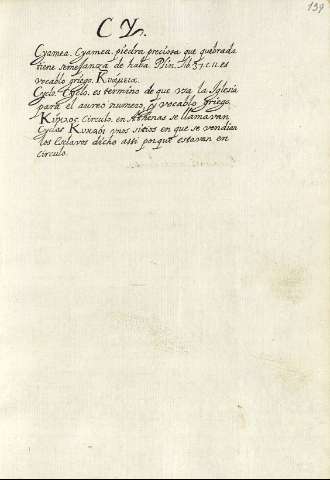 139
CY.
Cyamea. Cyamea. piedra preciosa que quebrada
tiene semejanza de haba. Plin. lib. 37. c. 11. es
vocablo griego. Κυάμεια.
Cyclo. Cyclo. es termino de que usa la Iglesia
para el aureo numero, es vocablo griego,
Κύκλος. Circulo. en Athenas se llamavan
Cyclos Κυκλοι unos sitios en que se vendian
los Esclavos dicho assi porque estavan en
circulo.